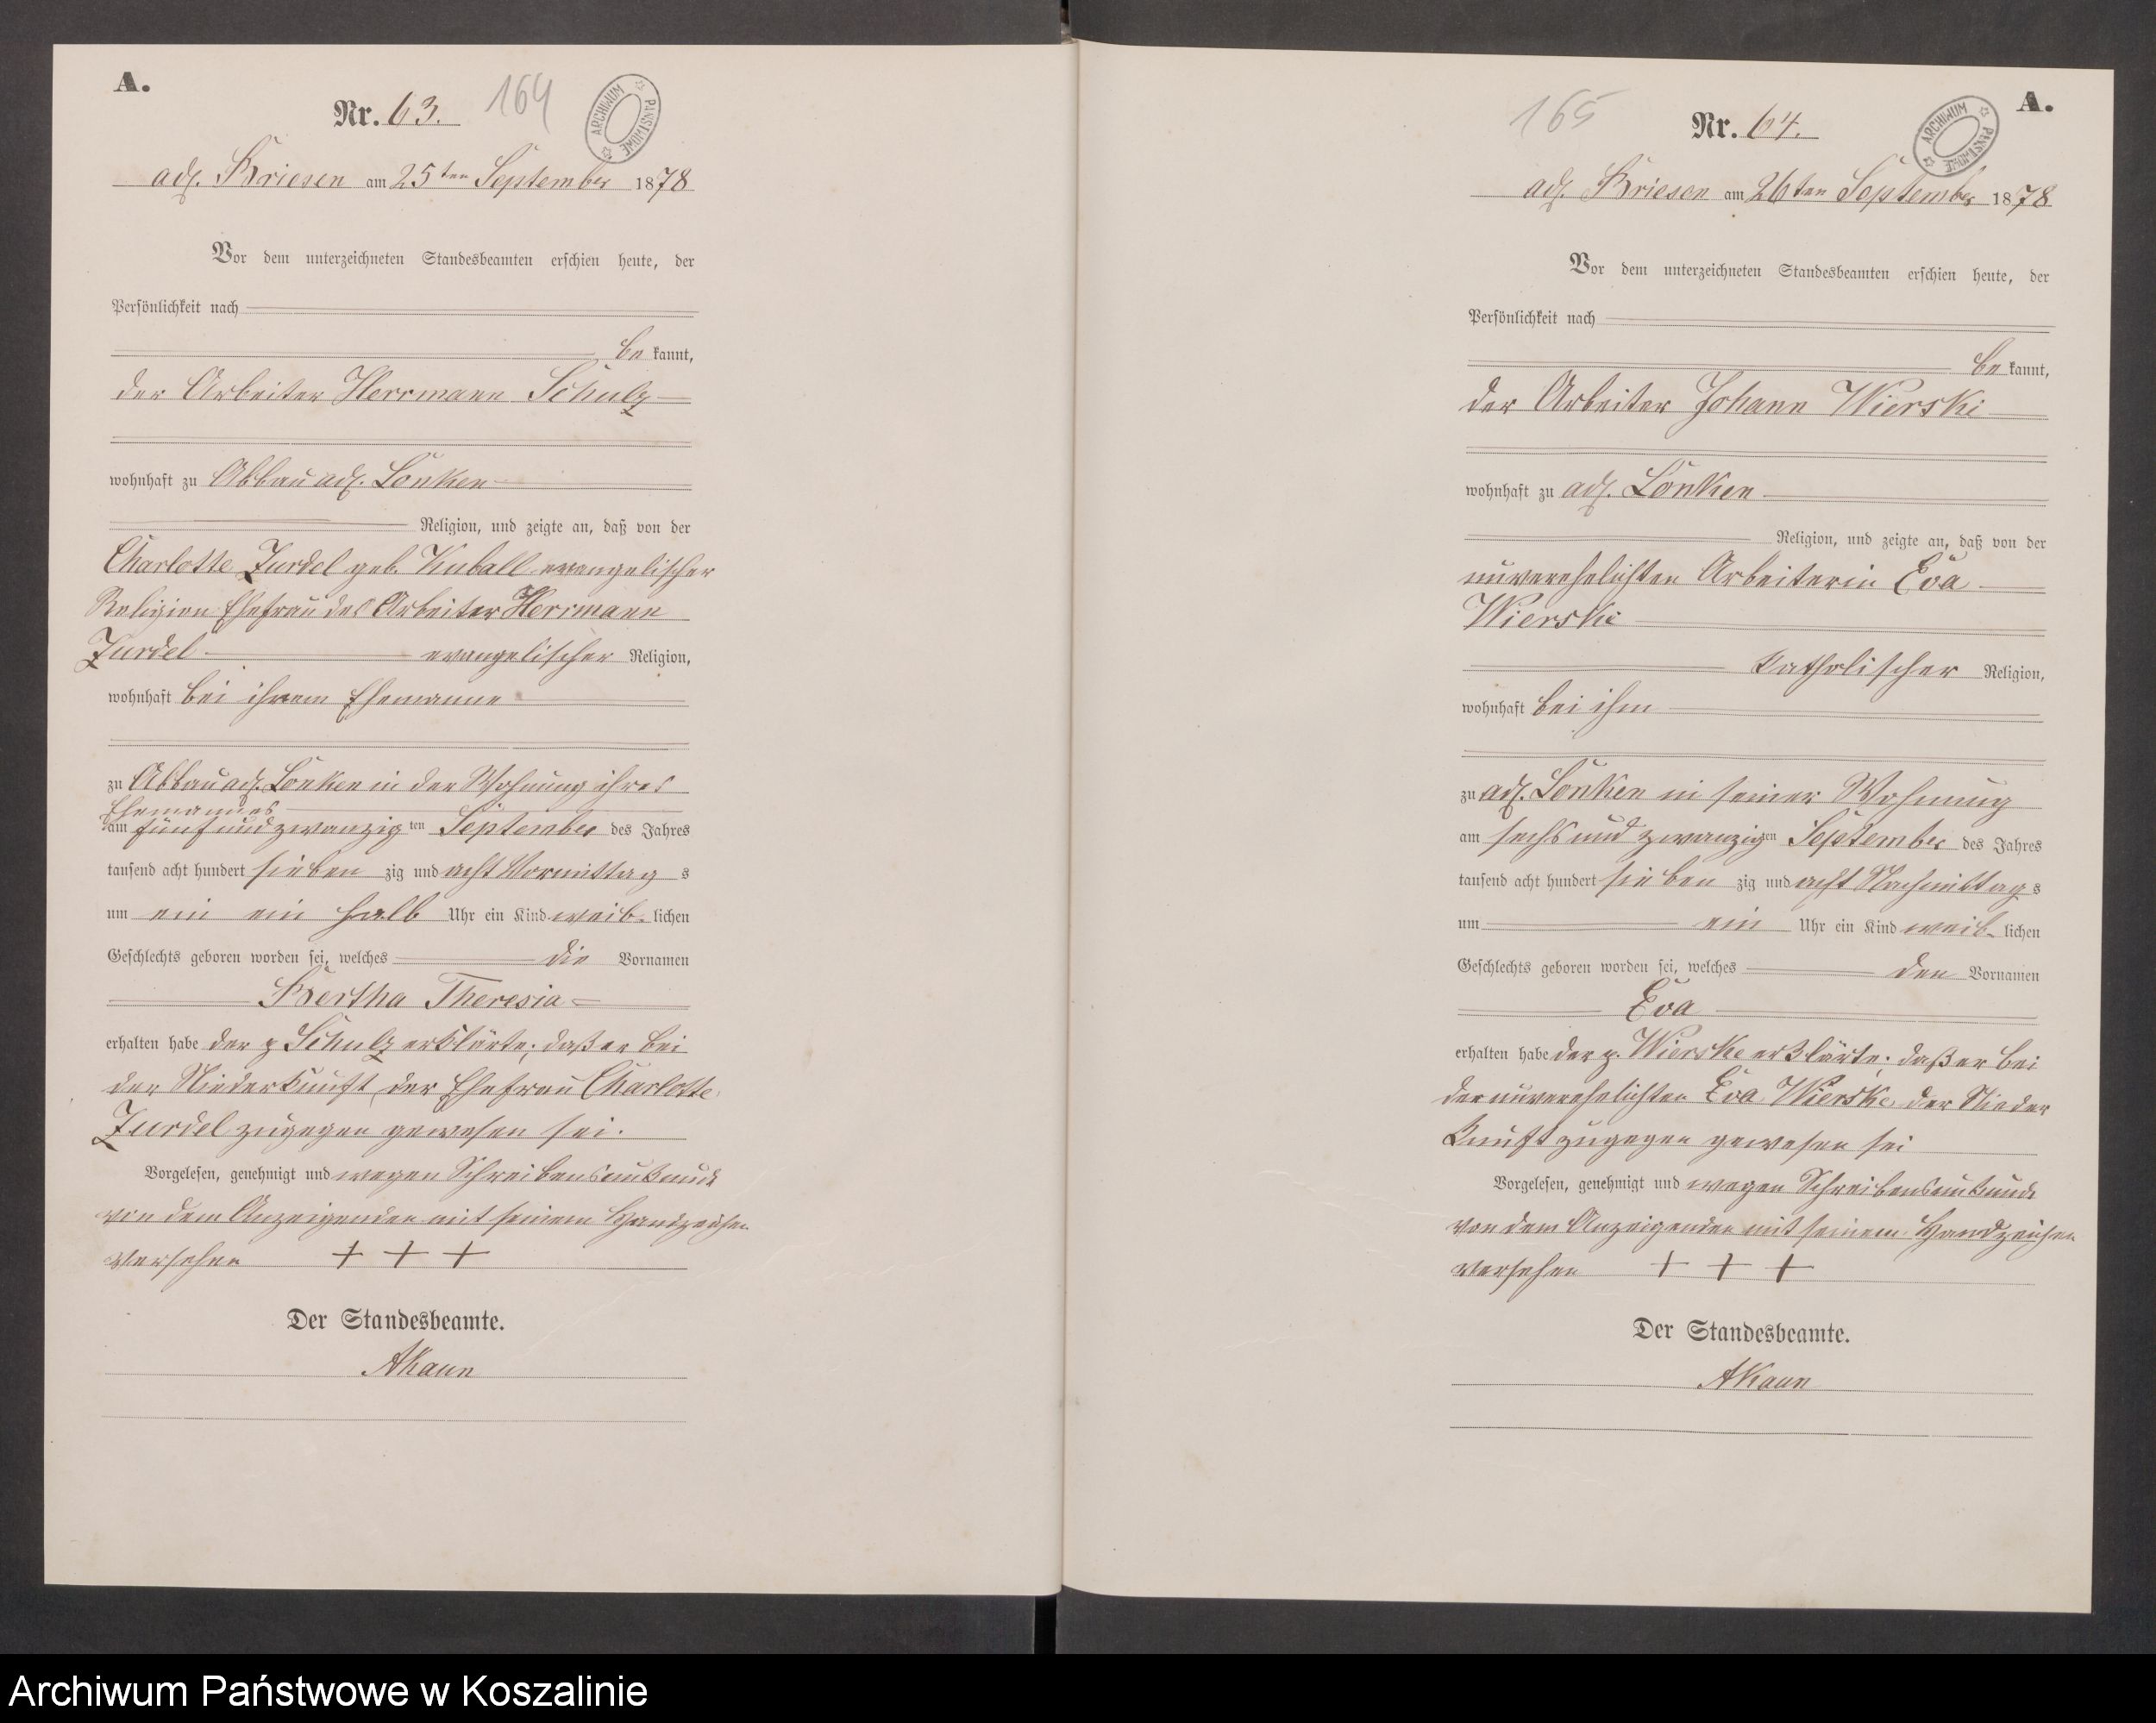 A.
Nr. 63.
164
ARCHIWUM PAŃSTWOWE
adl. Briesen am 25ten September 1878
Vor dem unterzeichneten Standesbeamten erschien heute, der
Persönlichkeit nach
be kannt,
der Arbeiter Herrmann Schulz
wohnhaft zu Abbau adl. Lonken
Religion, und zeigte an, daß von der
Charlotte Zurdel geb. Kuball evangelischer
Religion Ehefrau des Arbeiter Herrmann
Zurdel evangelischer Religion,
wohnhaft bei ihrem Ehemanne
zu Abbau adl. Lonken in der Wohnung ihres
Ehemannes
am fünf und zwanzig ten September des Jahres
tausend acht hundert sieben zig und acht Vormittag s
um ein ein halb Uhr ein Kind weib- lichen
Geschlechts geboren worden sei, welches die Vornamen
Bertha Theresia
erhalten habe der p Schulz erklärte; daß er bei
der Niederkunft der Ehefrau Charlotte
Zurdel zugegen gewesen sei.
Vorgelesen, genehmigt und wegen Schreibensunkunde
von dem Anzeigenden mit seinem Handzeichen
versehen + + +
Der Standesbeamte.
AKaun
A.
165
Nr. 64.
ARCHIWUM PAŃSTWOWE
adl. Briesen am 26ten September 1878
Vor dem unterzeichneten Standesbeamten erschien heute, der
Persönlichkeit nach
be kannt,
der Arbeiter Johann Wierski
wohnhaft zu adl. Lonken
Religion, und zeigte an, daß von der
unverehelichten Arbeiterin Eva
Wierski
katholischer Religion,
wohnhaft bei ihm
zu adl. Lonken in seiner Wohnung
am sechs und zwanzig ten September des Jahres
tausend acht hundert sieben zig und acht Nachmittag s
um ein Uhr ein Kind weib- lichen
Geschlechts geboren worden sei, welches den Vornamen
Eva
erhalten habe der p. Wierske erklärte; daß er bei
der unverehelichten Eva Wierske der Nieder
kunft zugegen gewesen sei
Vorgelesen, genehmigt und wegen Schreibensunkunde
von dem Anzeigenden mit seinem Handzeichen
versehen + + +
Der Standesbeamte.
AKaun
Archiwum Państwowe w Koszalinie